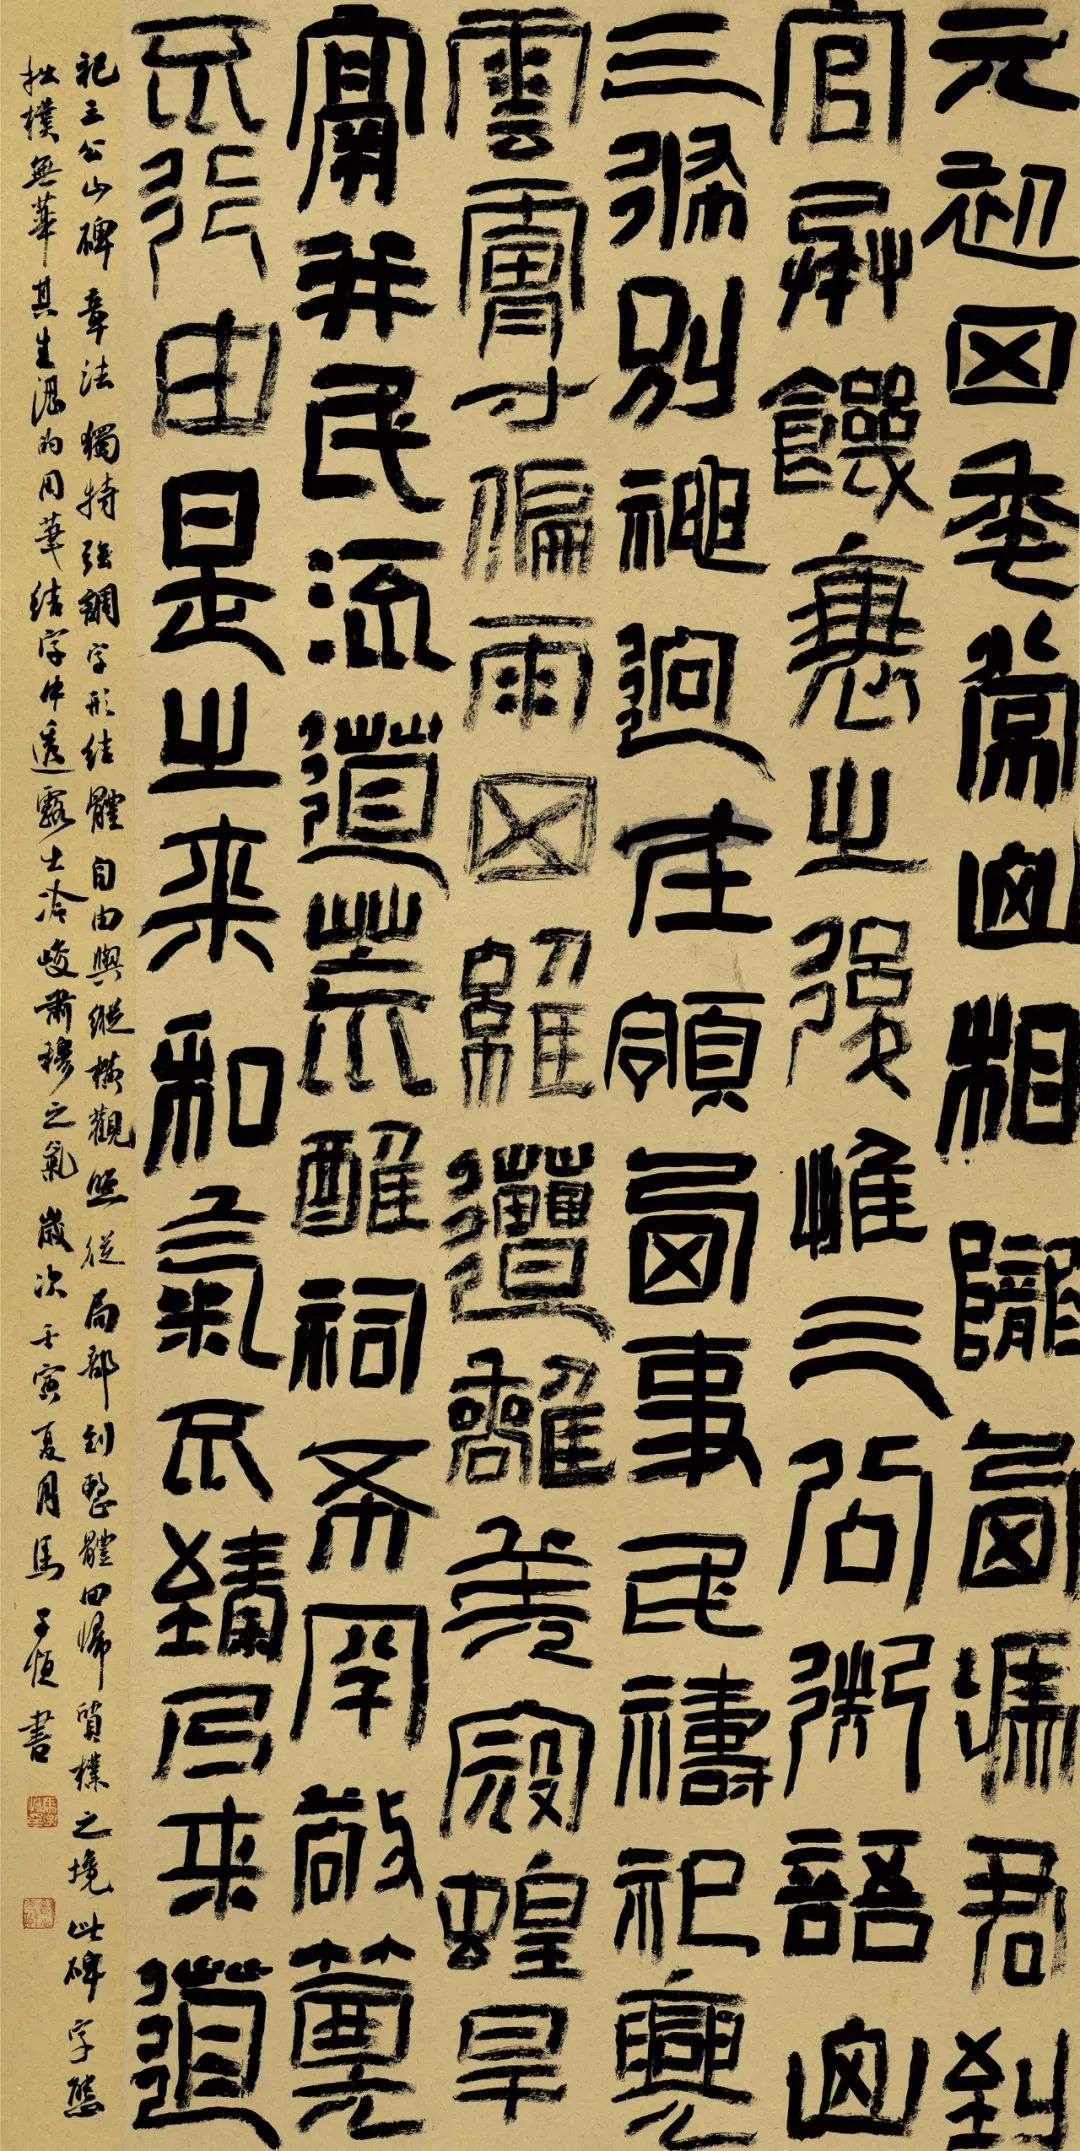 元初四年常山相隴西馮君到
官承饑衰之後惟三公御語山
三條別神迥在領西事民禱祀興
雲膚寸偏雨四維遭離羌寇蝗旱
鬲并民流道荒醮祠希罕敬奠
不行由是之來和氣不臻乃來道
祀三公山碑章法獨特強調字形結體自由與縱橫觀照從局部到整體回歸質樸之境此碑字態
拙樸無華其生澀的用筆結字中透露出冷峻肅穆之氣歲次壬寅夏月馬子恒書